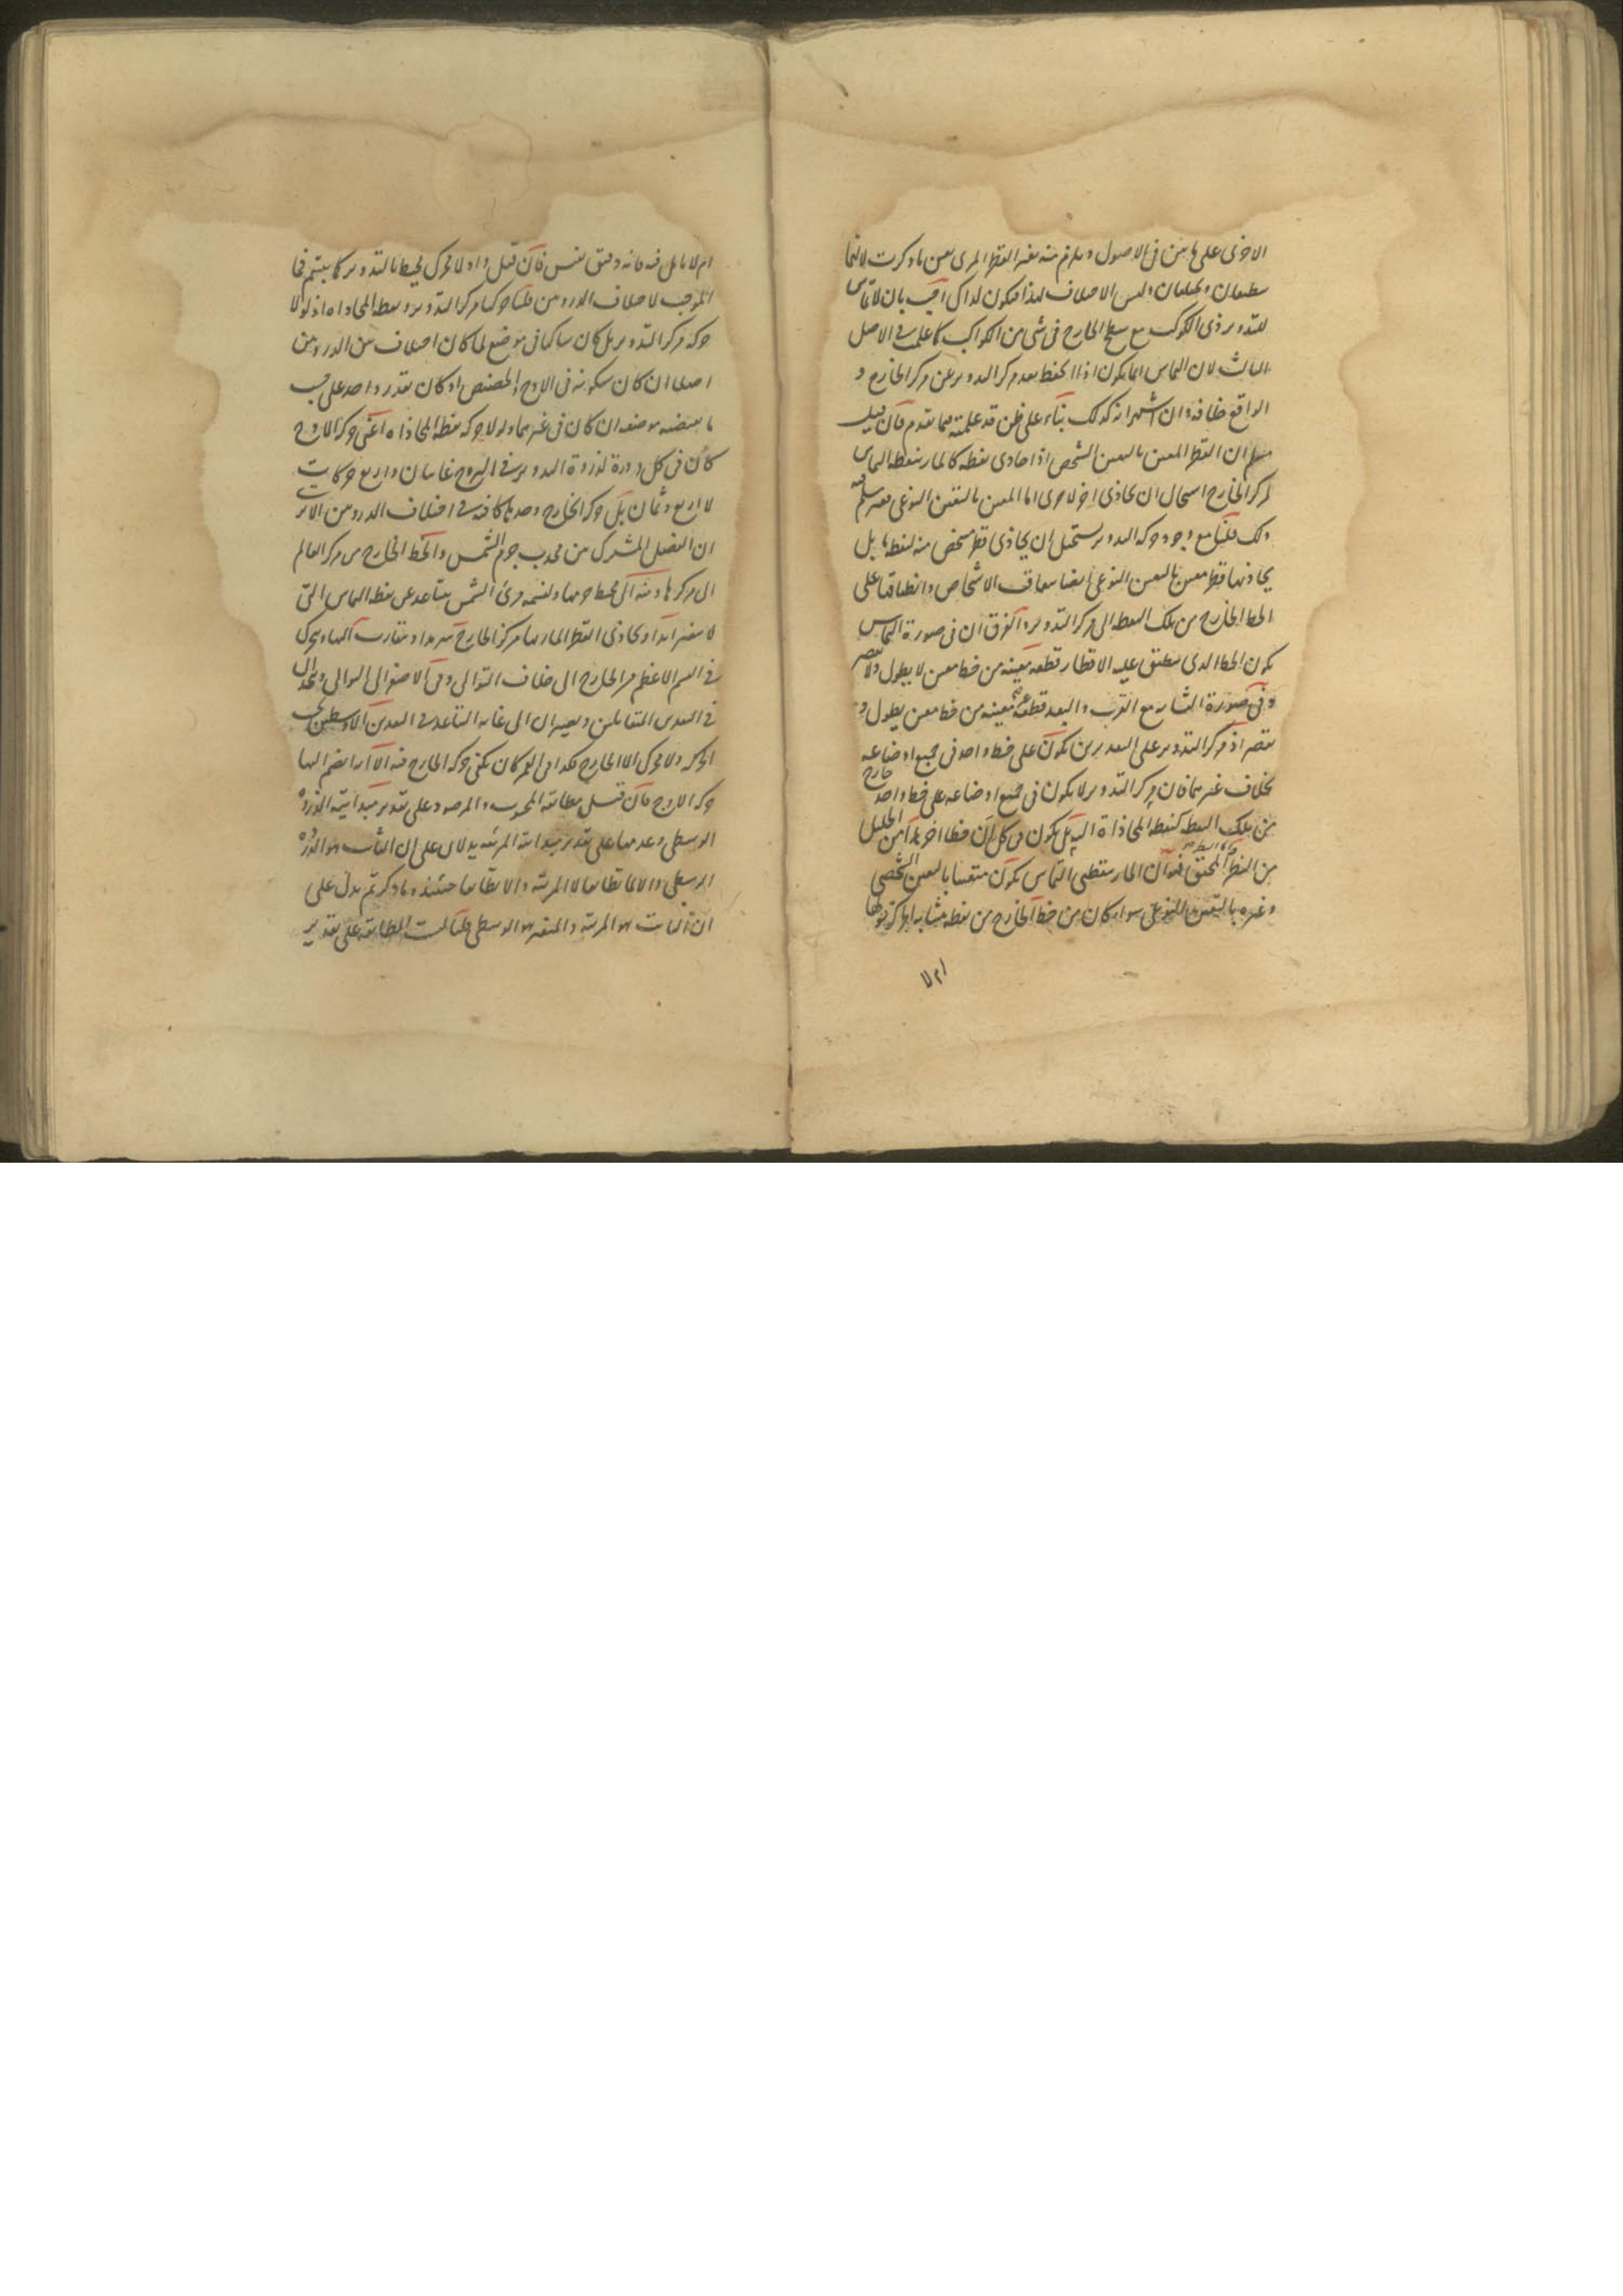 الاخرى على ما بين فى الاصول ويلزم منه تغير القطر المرى بعين ما ذكرت لانهما
ينطبقان ويختلفان وليس الاختلاف لهذا فيكون لذاك اجيب بان لا تماس
للتدوير ذى الكوكب مع سطح الخارج فى شى من الكواكب كما علمت فى الاصل
الثالث لان التماس انما يكون اذا انحفظ بعد مركز التدوير عن مركز الخارج و
الواقع خلافه وان اشتهر انه كذلك بناء على ظن قد علمته مما تقدم فان قيل
القطر المعين بالتعين الشخصى اذا حاذى نقطة كالمار بنقطة التماس
لمركز الخارج استحال ان يحاذى اخرى اما المعين بالتعين النوعى فغير مسلم فيه
ذلك قلنا مع وجود حركة التدوير يستحيل ان يحاذى قطر شخصى منه لنقطة ما بل
يحاذيها قطر معين بالتعين النوعى ايضا بتعاقب الاشخاص وانطباقها على
الخط الخارج من تلك النقطة الى مركز التدوير والفرق ان فى صورة التماس
يكون الخط الذى ينطبق عليه الاقطار قطعة معينة من خط معين لا يطول ولا يقصر
وفى صورة التشابه مع القرب والبعد قطعة غير معينة من خط معين يطول و
يقصر اذ مركز التدوير على التقديرين يكون على خط واحد فى جميع اوضاعه
بخلاف غيرهما فان مركز التدوير لا يكون فى جميع اوضاعه على خط واحد خارج
من تلك النقطة كنقطة المحاذاة بل يكون فى كل آن خطا اخر
من النظر المحقق فهو ان المار بنقطتى التماس يكون متعينا بالتعين الشخصى
وغيره بالتعين النوعى سواء كان من خط الخارج من نقطة تشابه او
ام لا تامل فيه فانه دقيق نفيس فان قيل اولا محرك يحيط بالتدوير كما بينتم فما
الموجب لاختلاف الذروتين قلنا حركتا مركز التدوير ونقطة المحاذاة اذ لولا
حركة مركز التدوير بل كان ساكنا فى موضع لما كان اختلاف بين الذروتين
اصلا ان كان سكونه فى الاوج او الحضيض او كان بقدر واحد على حسب
ما يقتضيه موضعه ان كان فى غيرهما ولولا حركة نقطة المحاذاة اعنى حركة الاوج
كان فى كل دورة لذروة التدوير فى البروج غايتان واربع حركات
لا اربع وثمان بل حركة الخارج وحدها كافية فى اختلاف الذروتين الا تر
ان الفصل المشترك من محدب جرم الشمس والخط الخارج من مركز العالم
الى مركزها ومنه الى محيط جرمها ولنسمه مرئ الشمس يتباعد عن نقطة التماس التى
لا تتغير ابدا ويحاذى القطر المار بها مركز الخارج سرمدا ويتقارب اليها ويتحرك
فى القسم الاعظم من الخارج الى خلاف التوالى وفى الاصغر الى التوالى ويتحدان
فى البعدين المتقابلين ويصيران الى غاية التباعد فى البعدين الاوسطين بحسب
الحركة ولا محرك الا الخارج فكذا فى القمر كان يكفى حركة الخارج فيه الا انه انضم اليها
حركة الاوج فان قيل مطابقة المحسوب والمرصود على تقدير مبدائية الذروة
الوسطى وعدمها على تقدير مبدائية المرئية يدلان على ان الثابت هو الذروة
الوسطى والا لما تطابقا لا المرئية والا تطابقا حينئذ وما ذكرتم يدل على
ان الثابت هو المرئية والمتغير هو الوسطى قلنا ليست المطابقة على تقدير